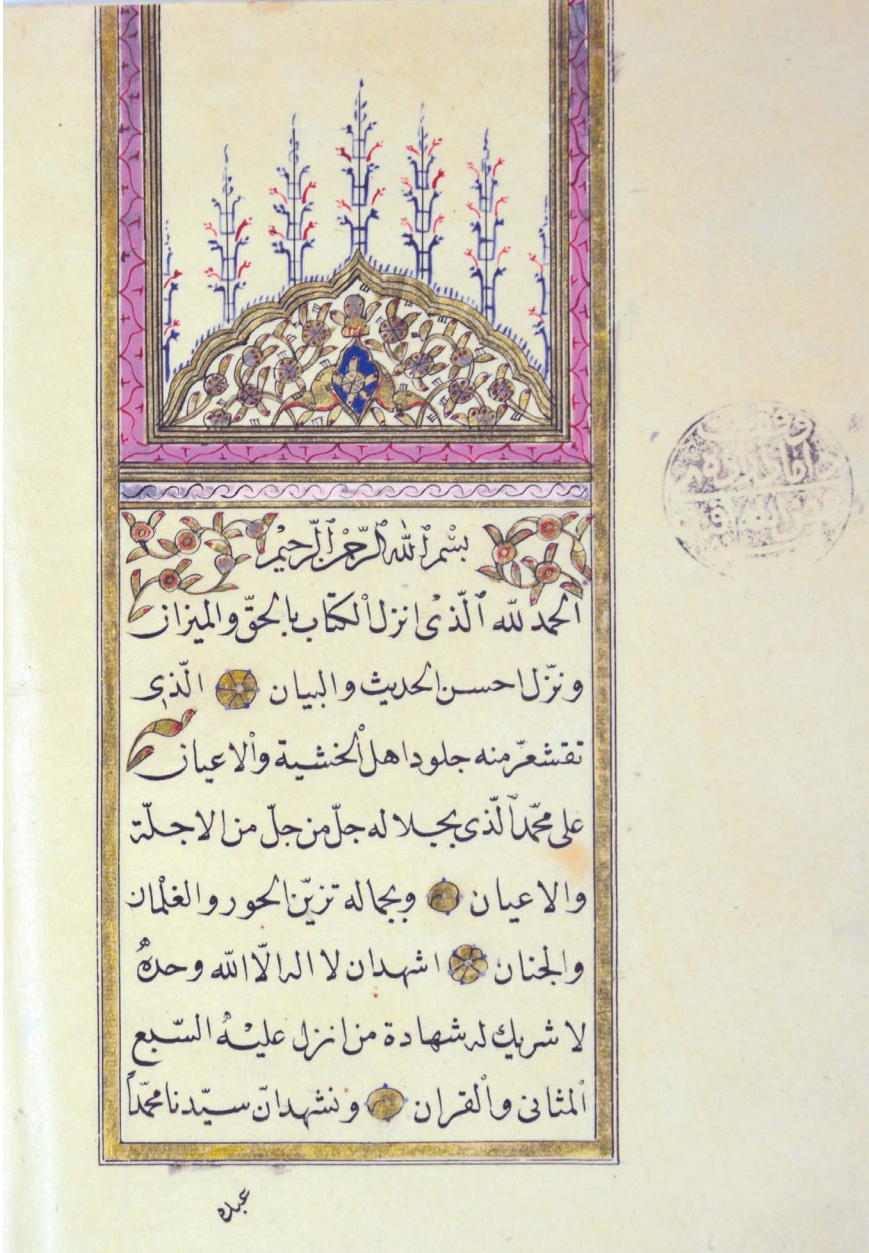 بسم الله الرحمن الرحيم
الحمد لله الّذى انزل الكتاب بالحقّ والميزان
ونزّل احسن الحديث والبيان الّذى
تقشعرّ منه جلود اهل الخشية والاعيان
على محمّد الّذى بجلاله جلّ من جلّ من الاجلّة
والاعيان وبجماله تزيّن الحور والغلمان
والجنان اشهد ان لا اله الّا اللّه وحده
لا شريك له شهادة من انزل عليه السّبع
المثانى والقران ونشهد انّ سيّدنا محمّداً
عبده